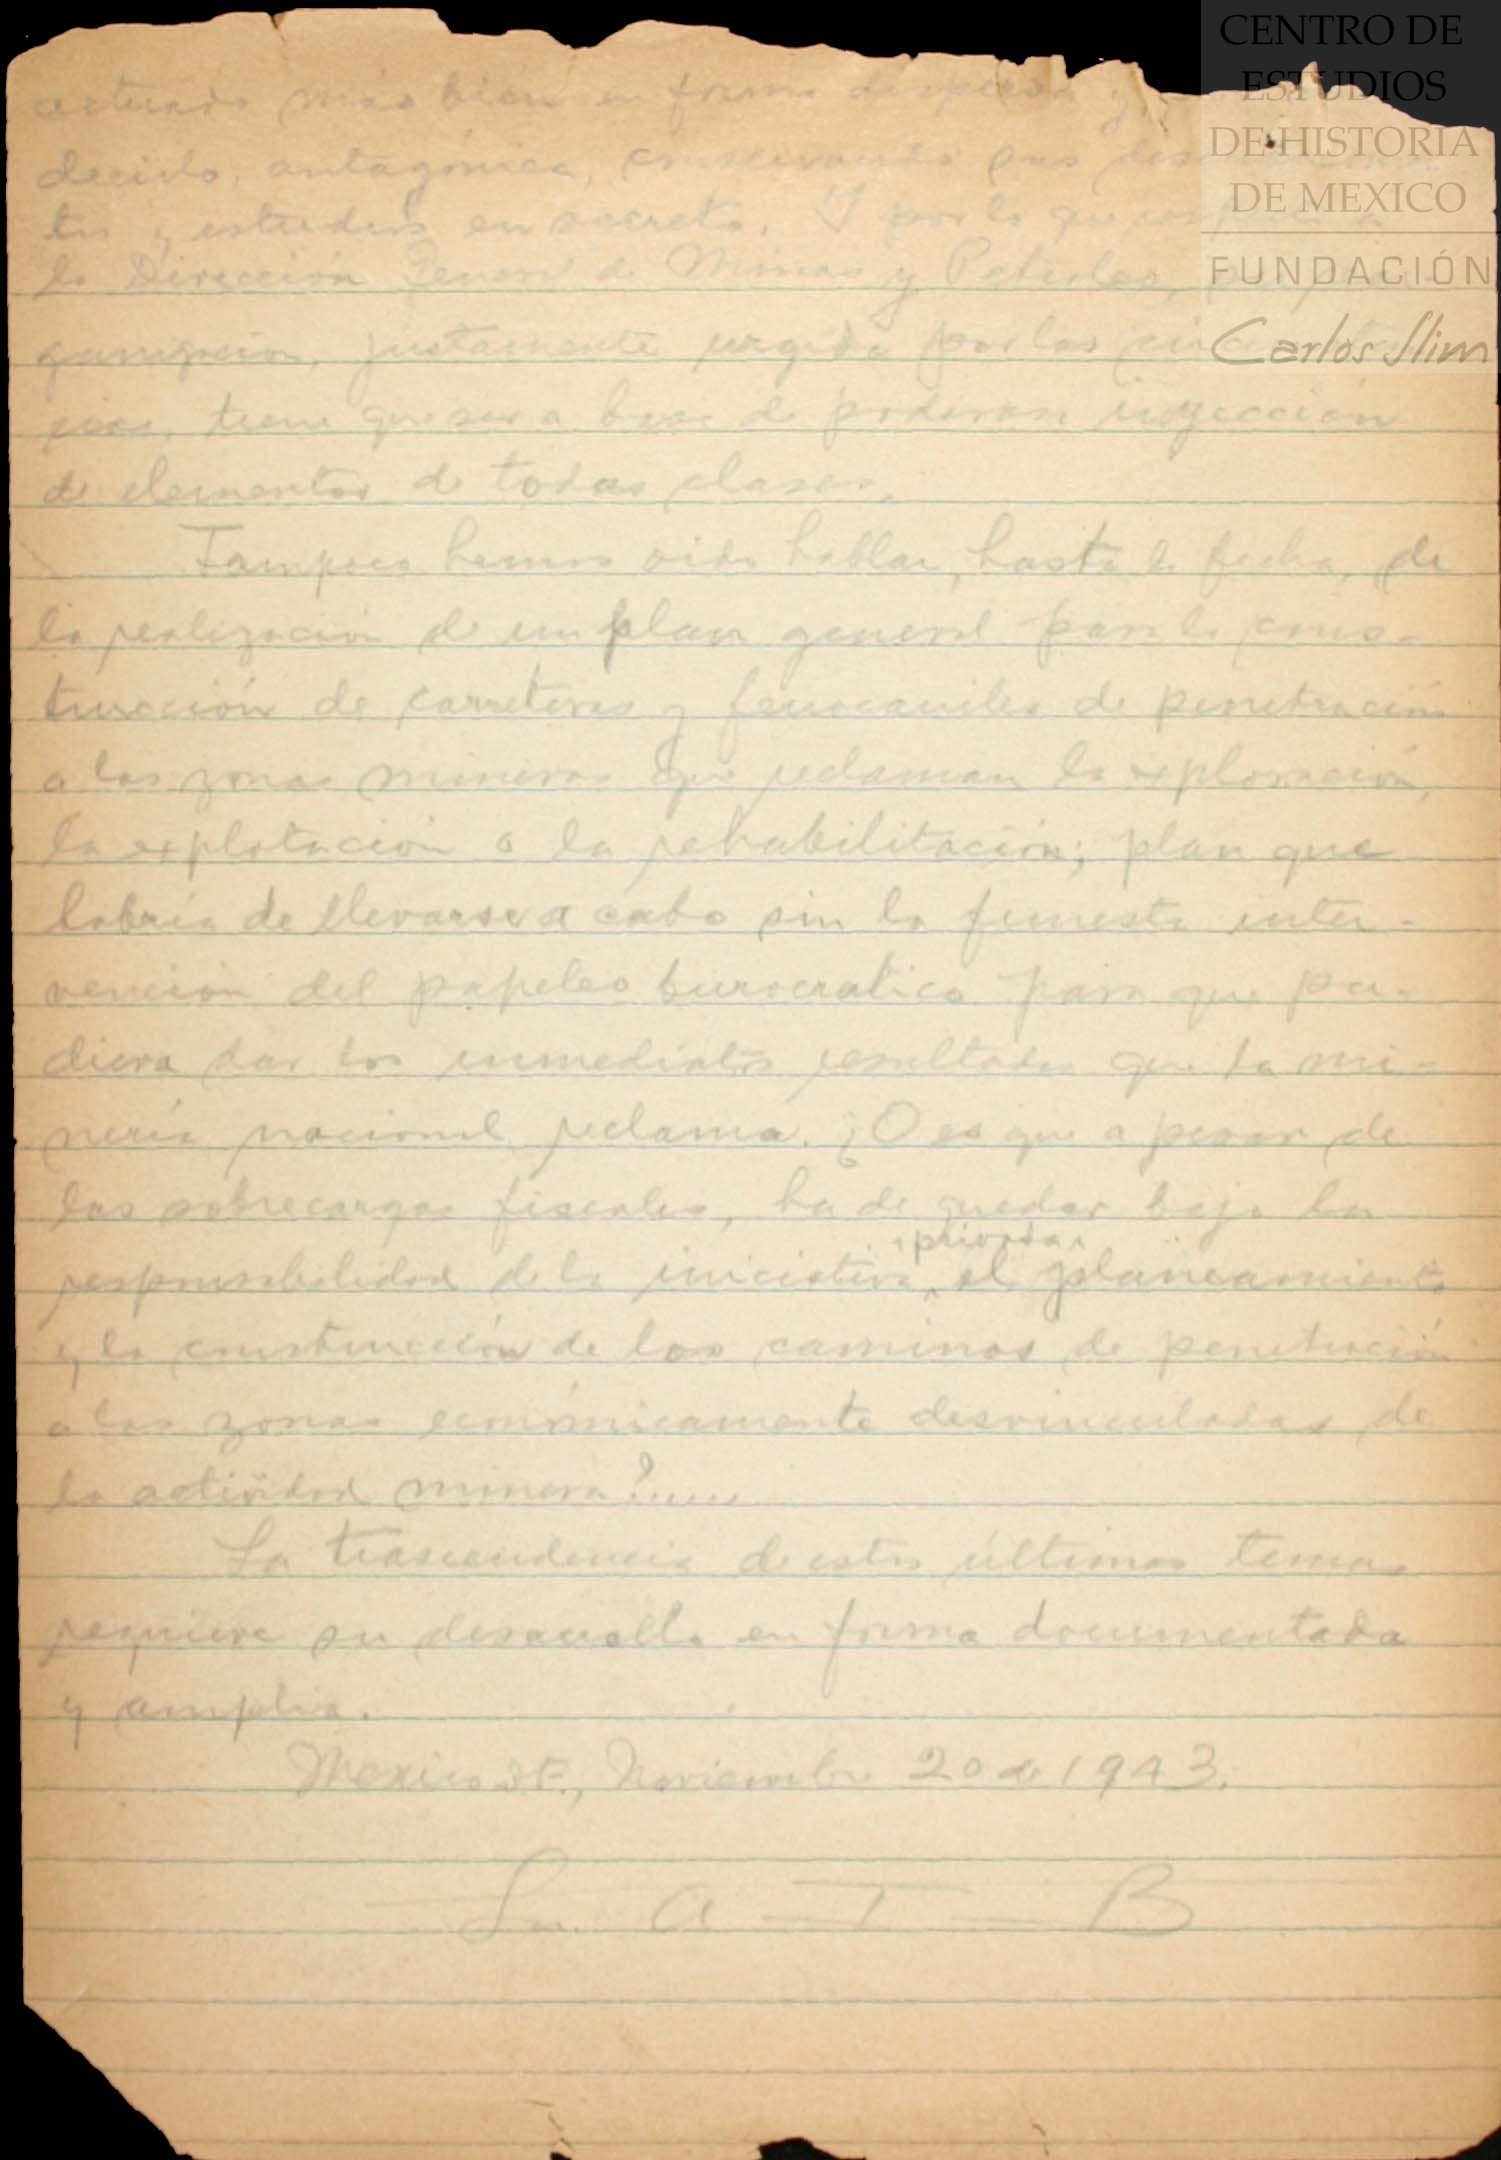 CENTRO DE
ESTUDIOS
DE HISTORIA
DE MEXICO
FUNDACIÓN
Carlos Slim
actuado más bien en forma dispersa y
decirlo, antagónica, conservando sus
tos y estudios en secreto. Y por lo que respecta a
la Dirección General de Minas y Petróleo, su reor-
ganización, justamente urgida por las
cias, tiene que ser a base de poderosa inyección
de elementos de todas clases.
Tampoco hemos oido hablar, hasta la fecha, de
la realización de un plan general para la cons-
trucción de carreteras y ferrocarriles de penetración
a las zonas mineras que reclaman la exploración,
la explotación o la rehabilitación; plan que
habría de llevarse a cabo sin la funesta inter-
vención del papeleo burocratico para que pu-
diera dar los inmediatos resultados que la mi-
nería nacional reclama. ¿O es que a pesar de
las sobrecargas fiscales, ha de quedar bajo la
responsabilidad de la iniciativa privada, el planeamiento
y la construcción de los caminos de penetración
a las zonas económicamente desvinculadas de
la actividad minera?.....
La trascendencia de estos últimos temas
requiere su desarrollo en forma documentada
y amplia.
Mexico D.F., Noviembre 20 de 1943.
A T B